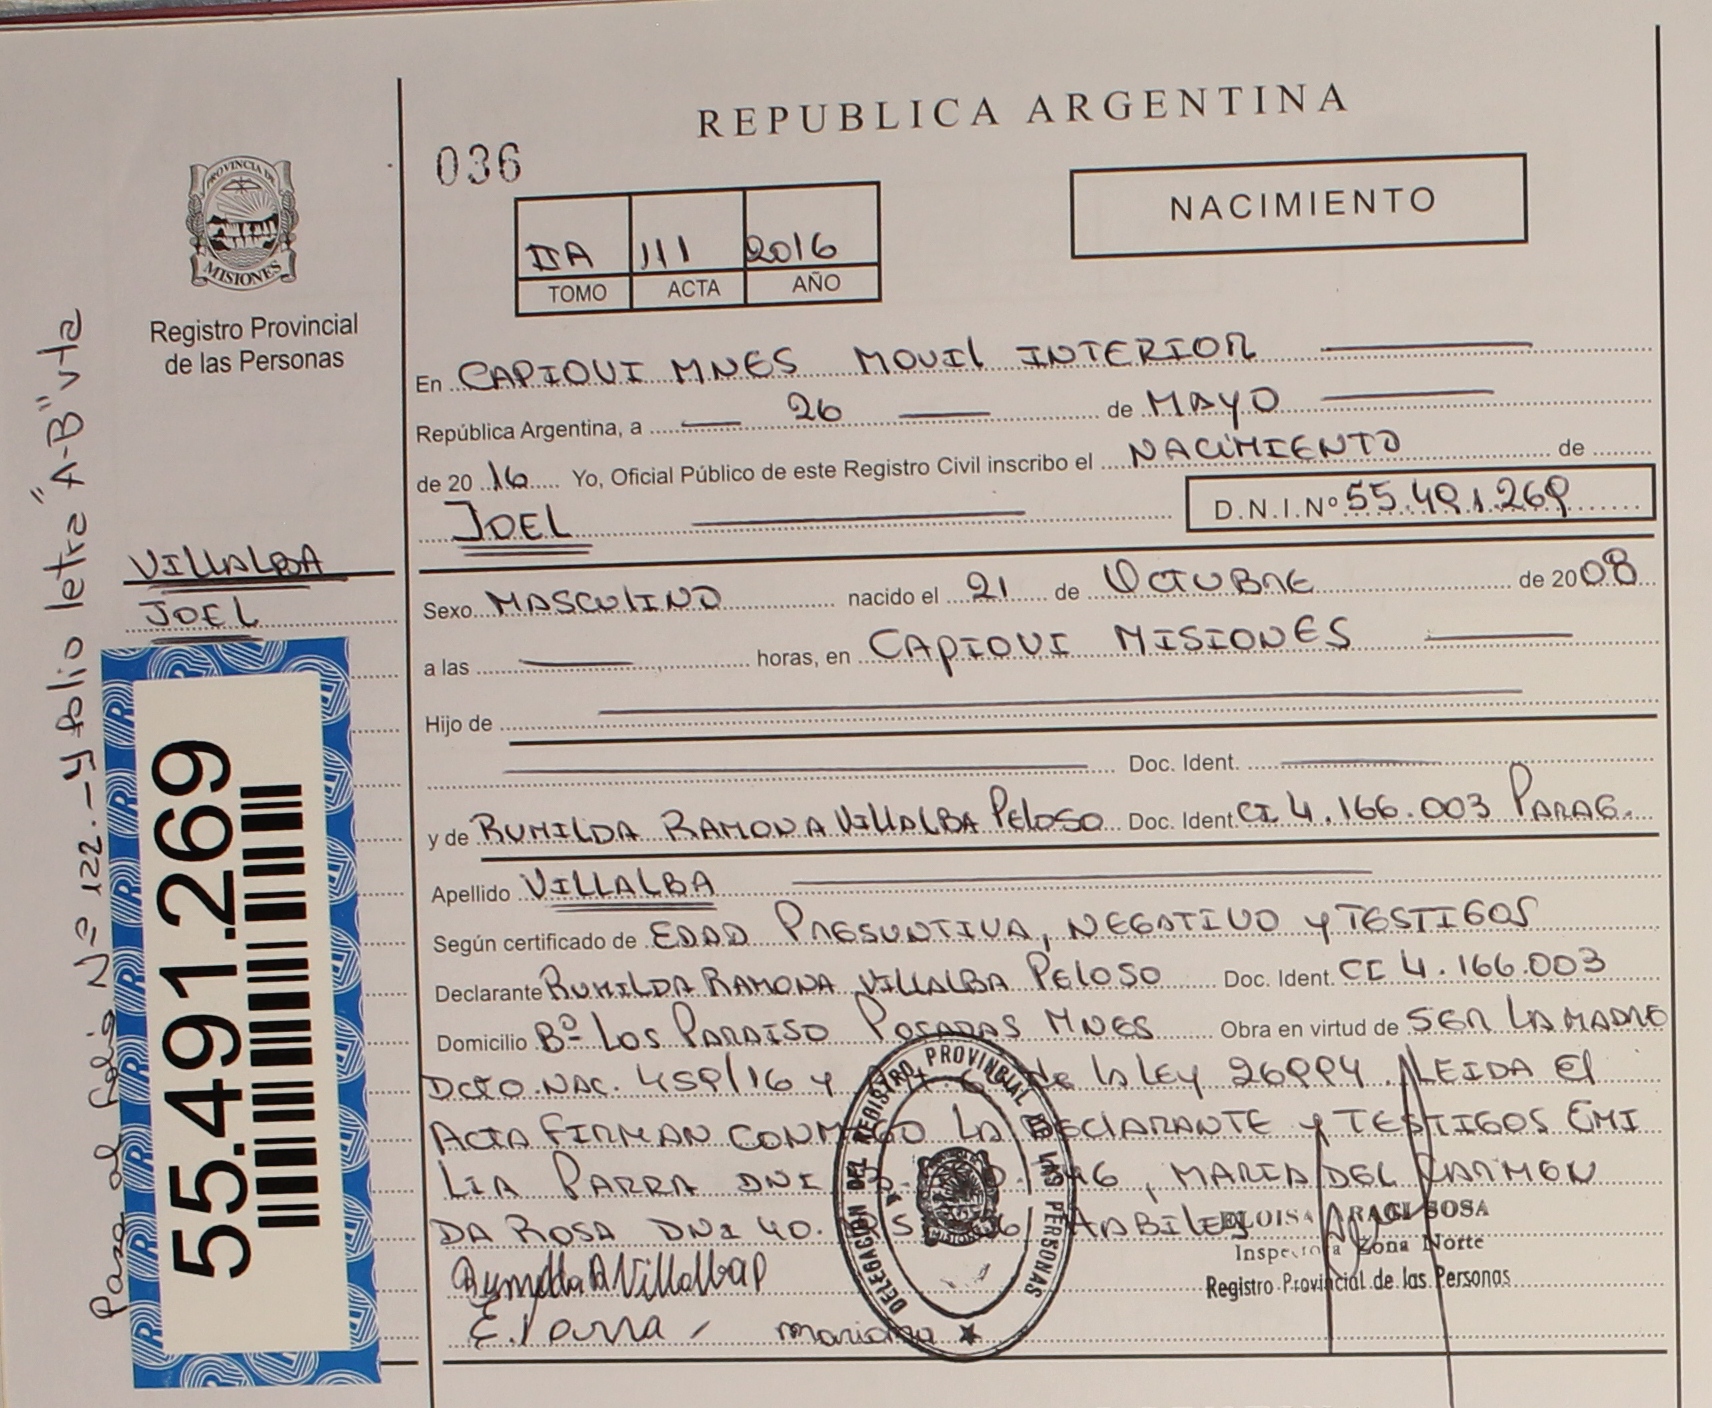 REPUBLICA ARGENTINA
036
NACIMIENTO
IIA 111 2016
TOMO ACTA AÑO
PROVINCIA DE
MISIONES
Registro Provincial
de las Personas
Pasa al folio Nº 122.- y folio letra "A-B" vta
VILLALBA
JOEL
55.491.269
En CAPIOVI MNES MOVIL INTERIOR
República Argentina, a 26 de MAYO
de 2016 Yo, Oficial Público de este Registro Civil inscribo el NACIMIENTO de
JOEL D.N.I.Nº 55.491.269
Sexo MASCULINO nacido el 21 de OCTUBRE de 2008
a las horas, en CAPIOVI MISIONES
Hijo de
Doc. Ident.
y de RUMILDA RAMONA VILLALBA PELOSO Doc. Ident. CI 4.166.003 PARAG.
Apellido VILLALBA
Según certificado de EDAD PRESUNTIVA, NEGATIVO y TESTIGOS
Declarante RUMILDA RAMONA VILLALBA PELOSO Doc. Ident. CI 4.166.003
Domicilio Bº LOS PARAISO POSADAS MNES Obra en virtud de SER LA MADRE
DCTO. NAC. 459/16 y de la LEY 26994. LEIDA El
ACTA FIRMAN CONMIGO LA DECLARANTE y TESTIGOS EMI
LIA PARRA DNI MARIA DEL CARMEN
DA ROSA DNI 40. HABILES
DELEGACION DEL REGISTRO PROVINCIAL DE LAS PERSONAS
ELOISA ARACI SOSA
Inspectora Zona Norte
Registro Provincial de las Personas
Rumilda R Villalba P
E. Parra